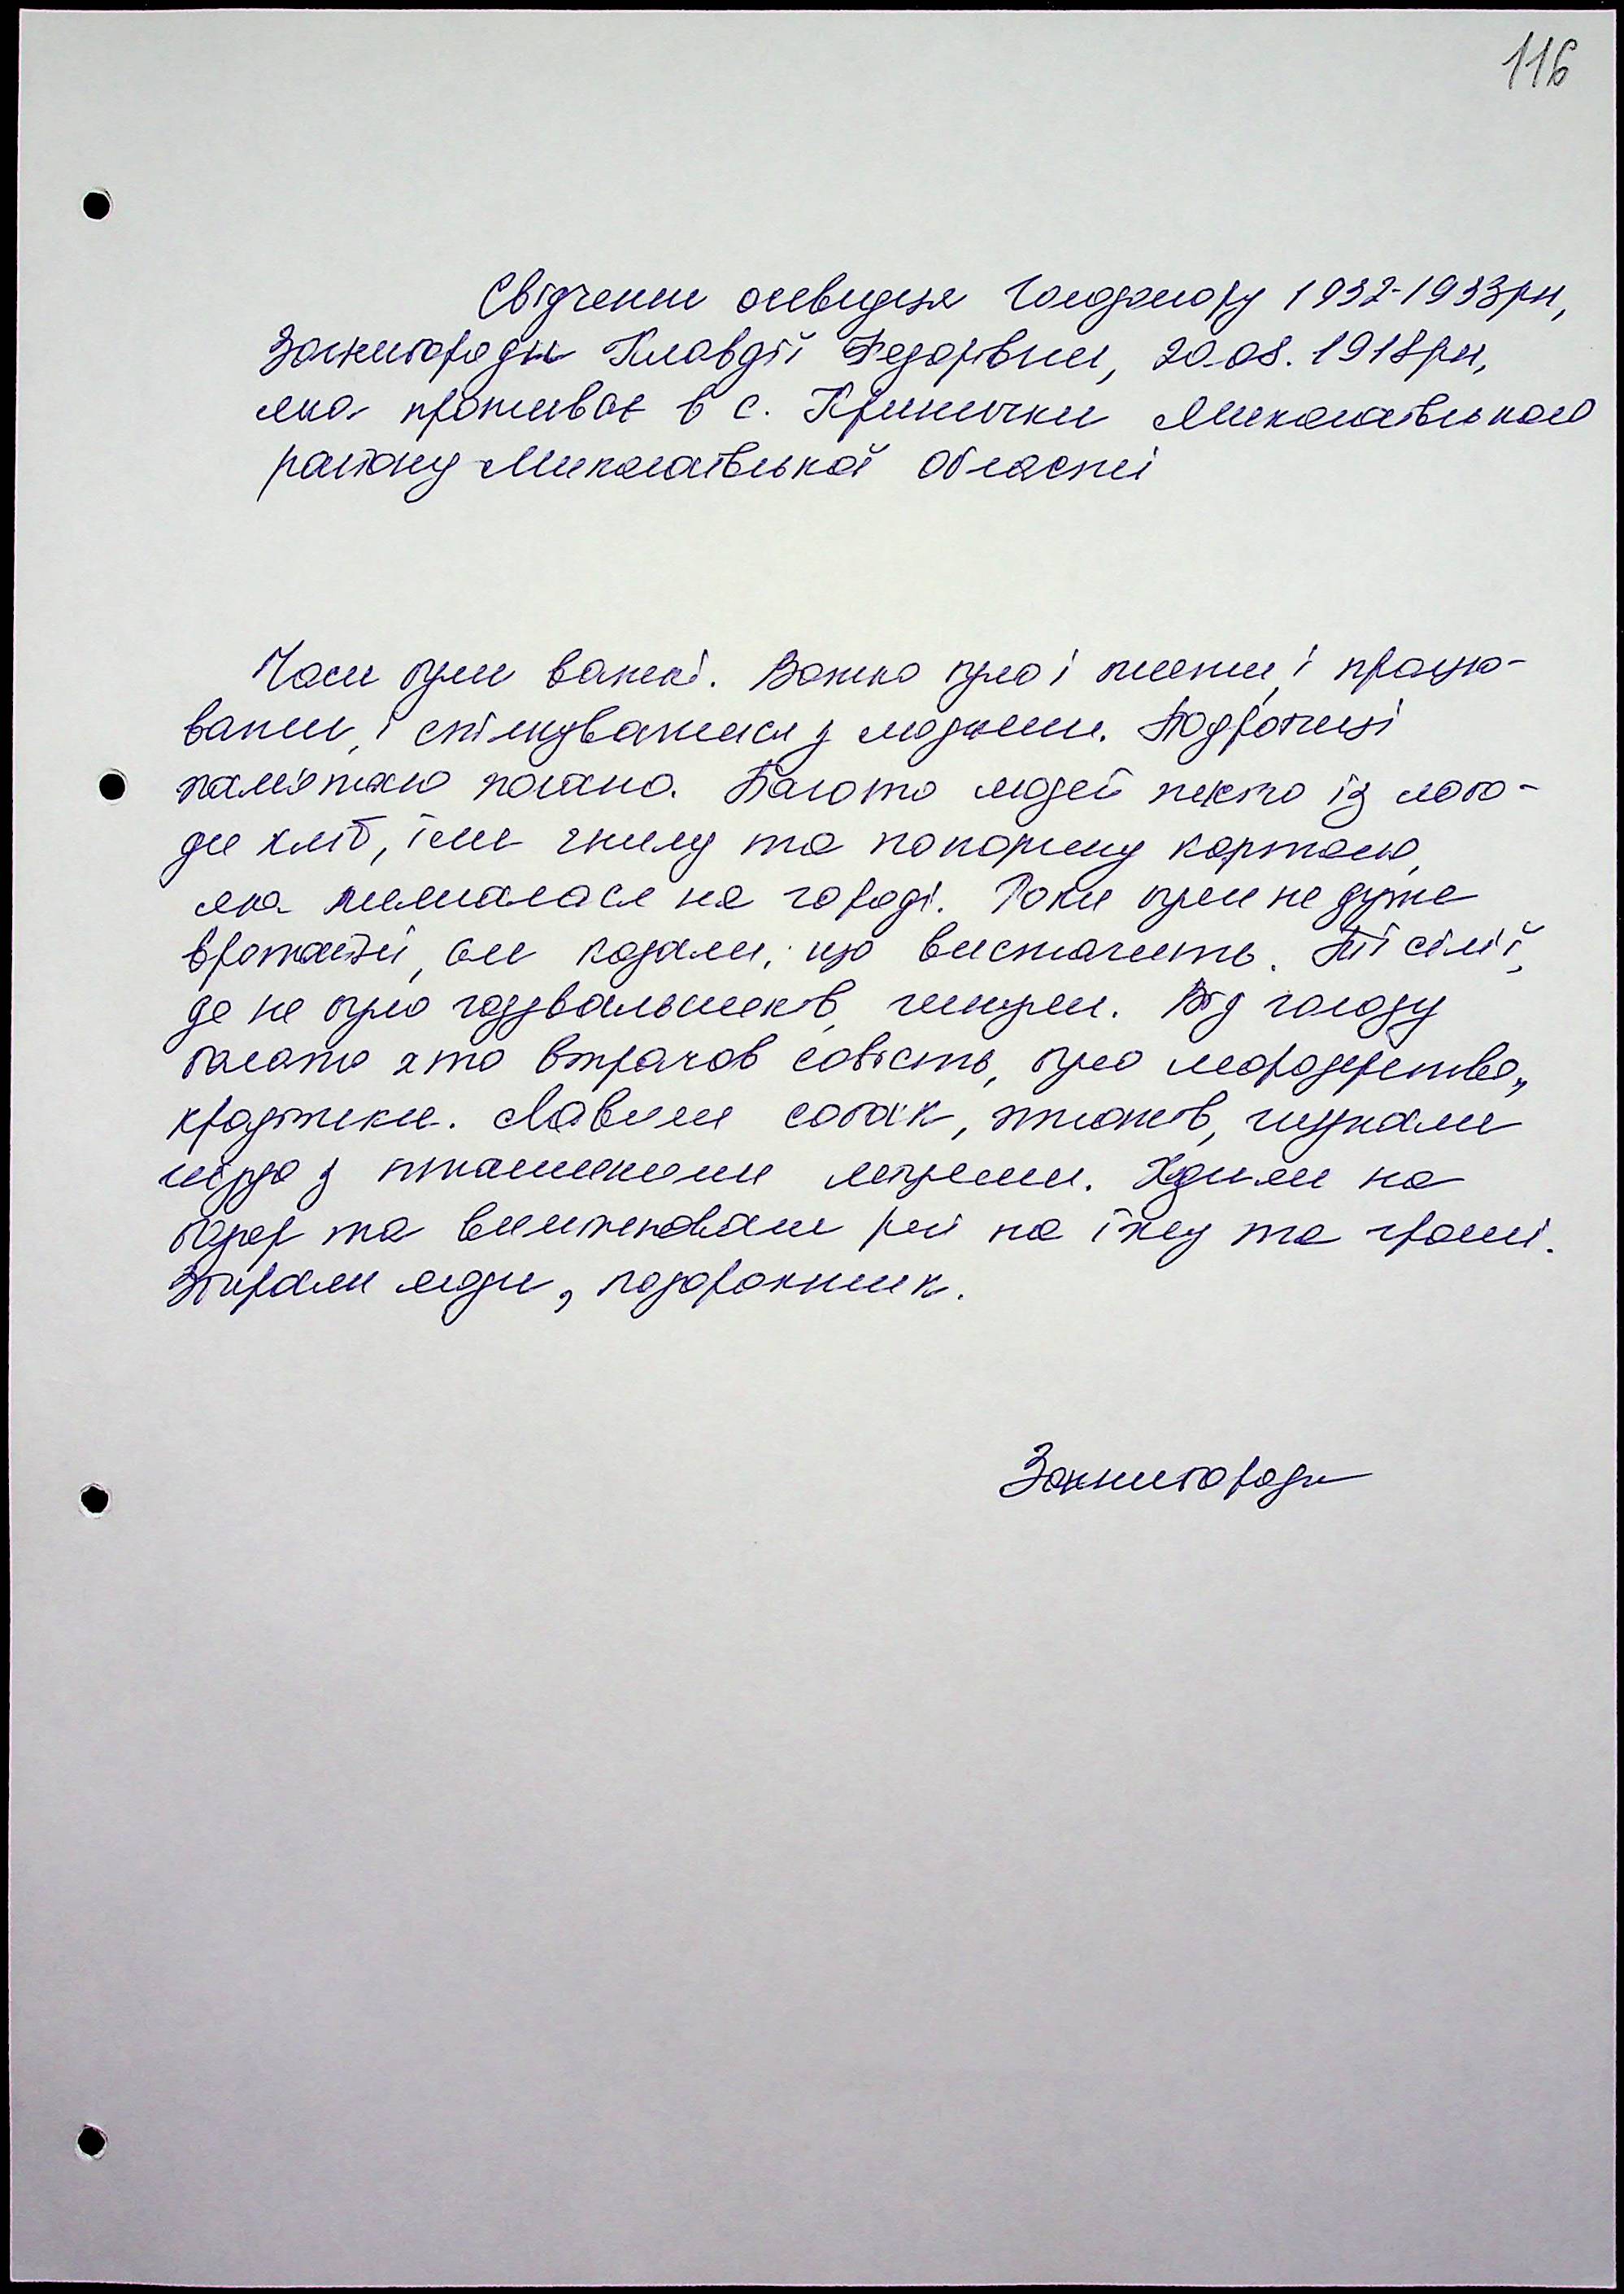 116
Свідчення очевидця Голодомору 1932-1933рн,
Зажигороди Клавдії Федорівни, 20.08.1918рн,
яка проживає в с. Кринички Миколаївського
району Миколаївської області
Часи були важкі. Важко було і жити, і працю-
вати, і спілкуватися з людьми. Подробиці
пам'ятаю погано. Багато людей пекло із лобо-
ди хліб, їли гнилу та попорчену картоплю,
яка лишалася на городі. Роки були не дуже
врожайні, але казали, що вистачить. Ті сім'ї,
де не було годувальників, гинули. Від голоду
багато хто втрачав совість, було мародерство,
крадіжки. Ловили собак, птахів, шукали
гнізда з пташиними яйцями. Ходили на
базар та вимінювали речі на їжу та гроші.
Збирали мідії, подорожник.